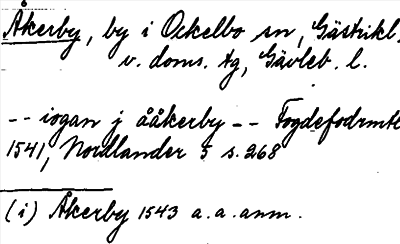 Åkerby, by i Ockelbo sn, Gästrikl.
v. doms. tg, Gävleb. l.
-- iogan j ååkerby -- Fogdefodrmtl
1541, Nordlander 5 s. 268
(i) Åkerby 1543 a. a. anm.